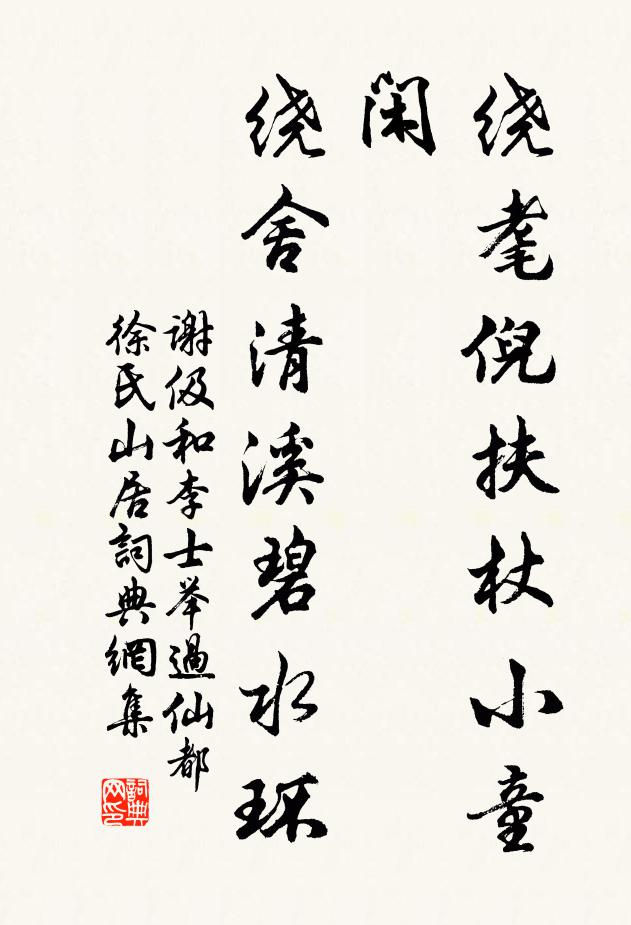 绕耄倪扶杖小童
闲
绕舍清溪碧水环
谢伋和李士举過仙都
徐氏山居詞典網集
詞典网印